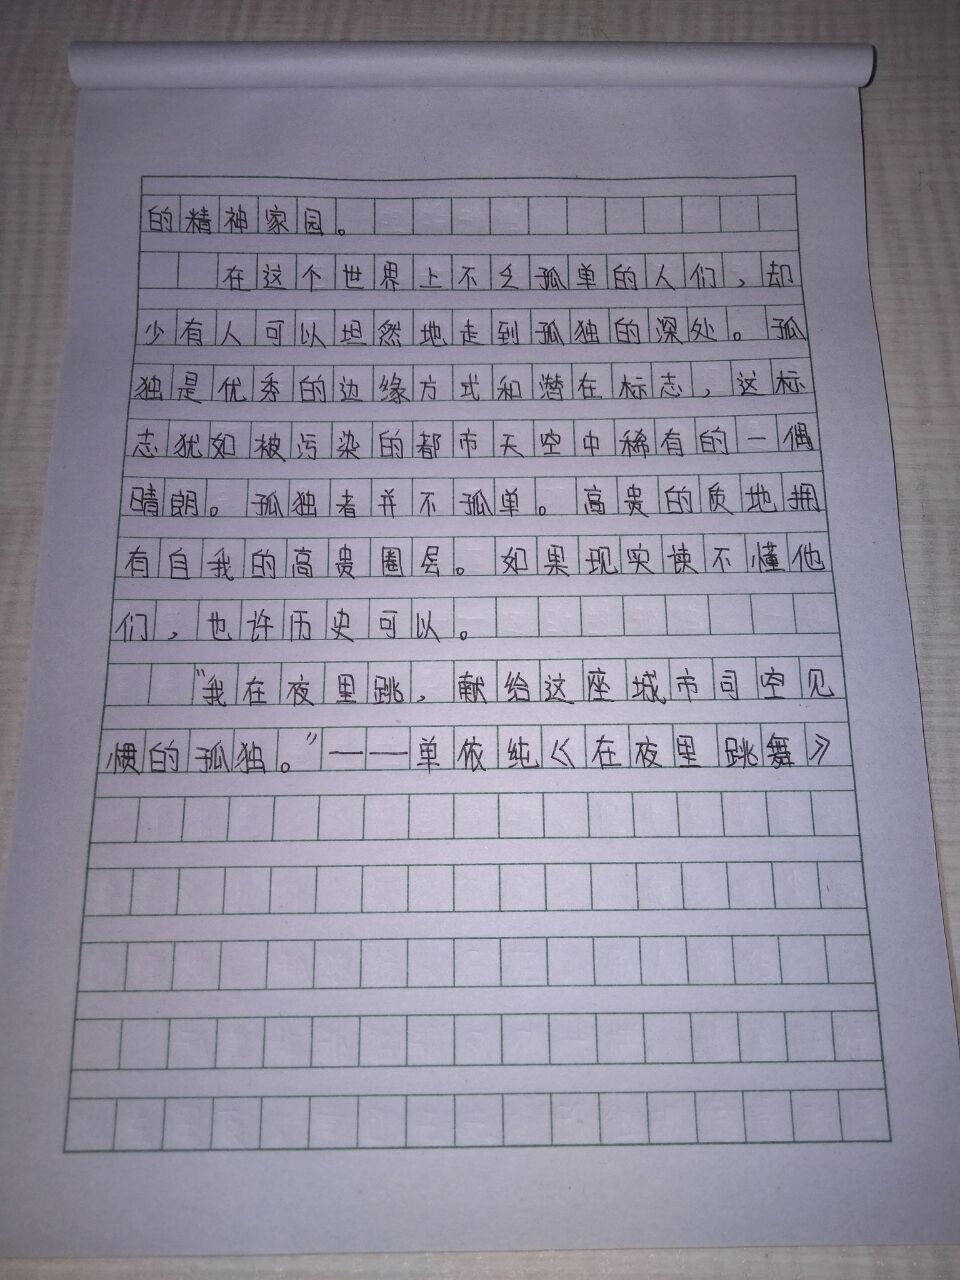 的精神家园。
在这个世界上不乏孤单的人们，却
少有人可以坦然地走到孤独的深处。孤
独是优秀的边缘方式和潜在标志，这标
志犹如被污染的都市天空中稀有的一偶
晴朗。孤独者并不孤单。高贵的质地拥
有自我的高贵圈层。如果现实读不懂他
们，也许历史可以。
“我在夜里跳，献给这座城市司空见
惯的孤独。”——单依纯《在夜里跳舞》